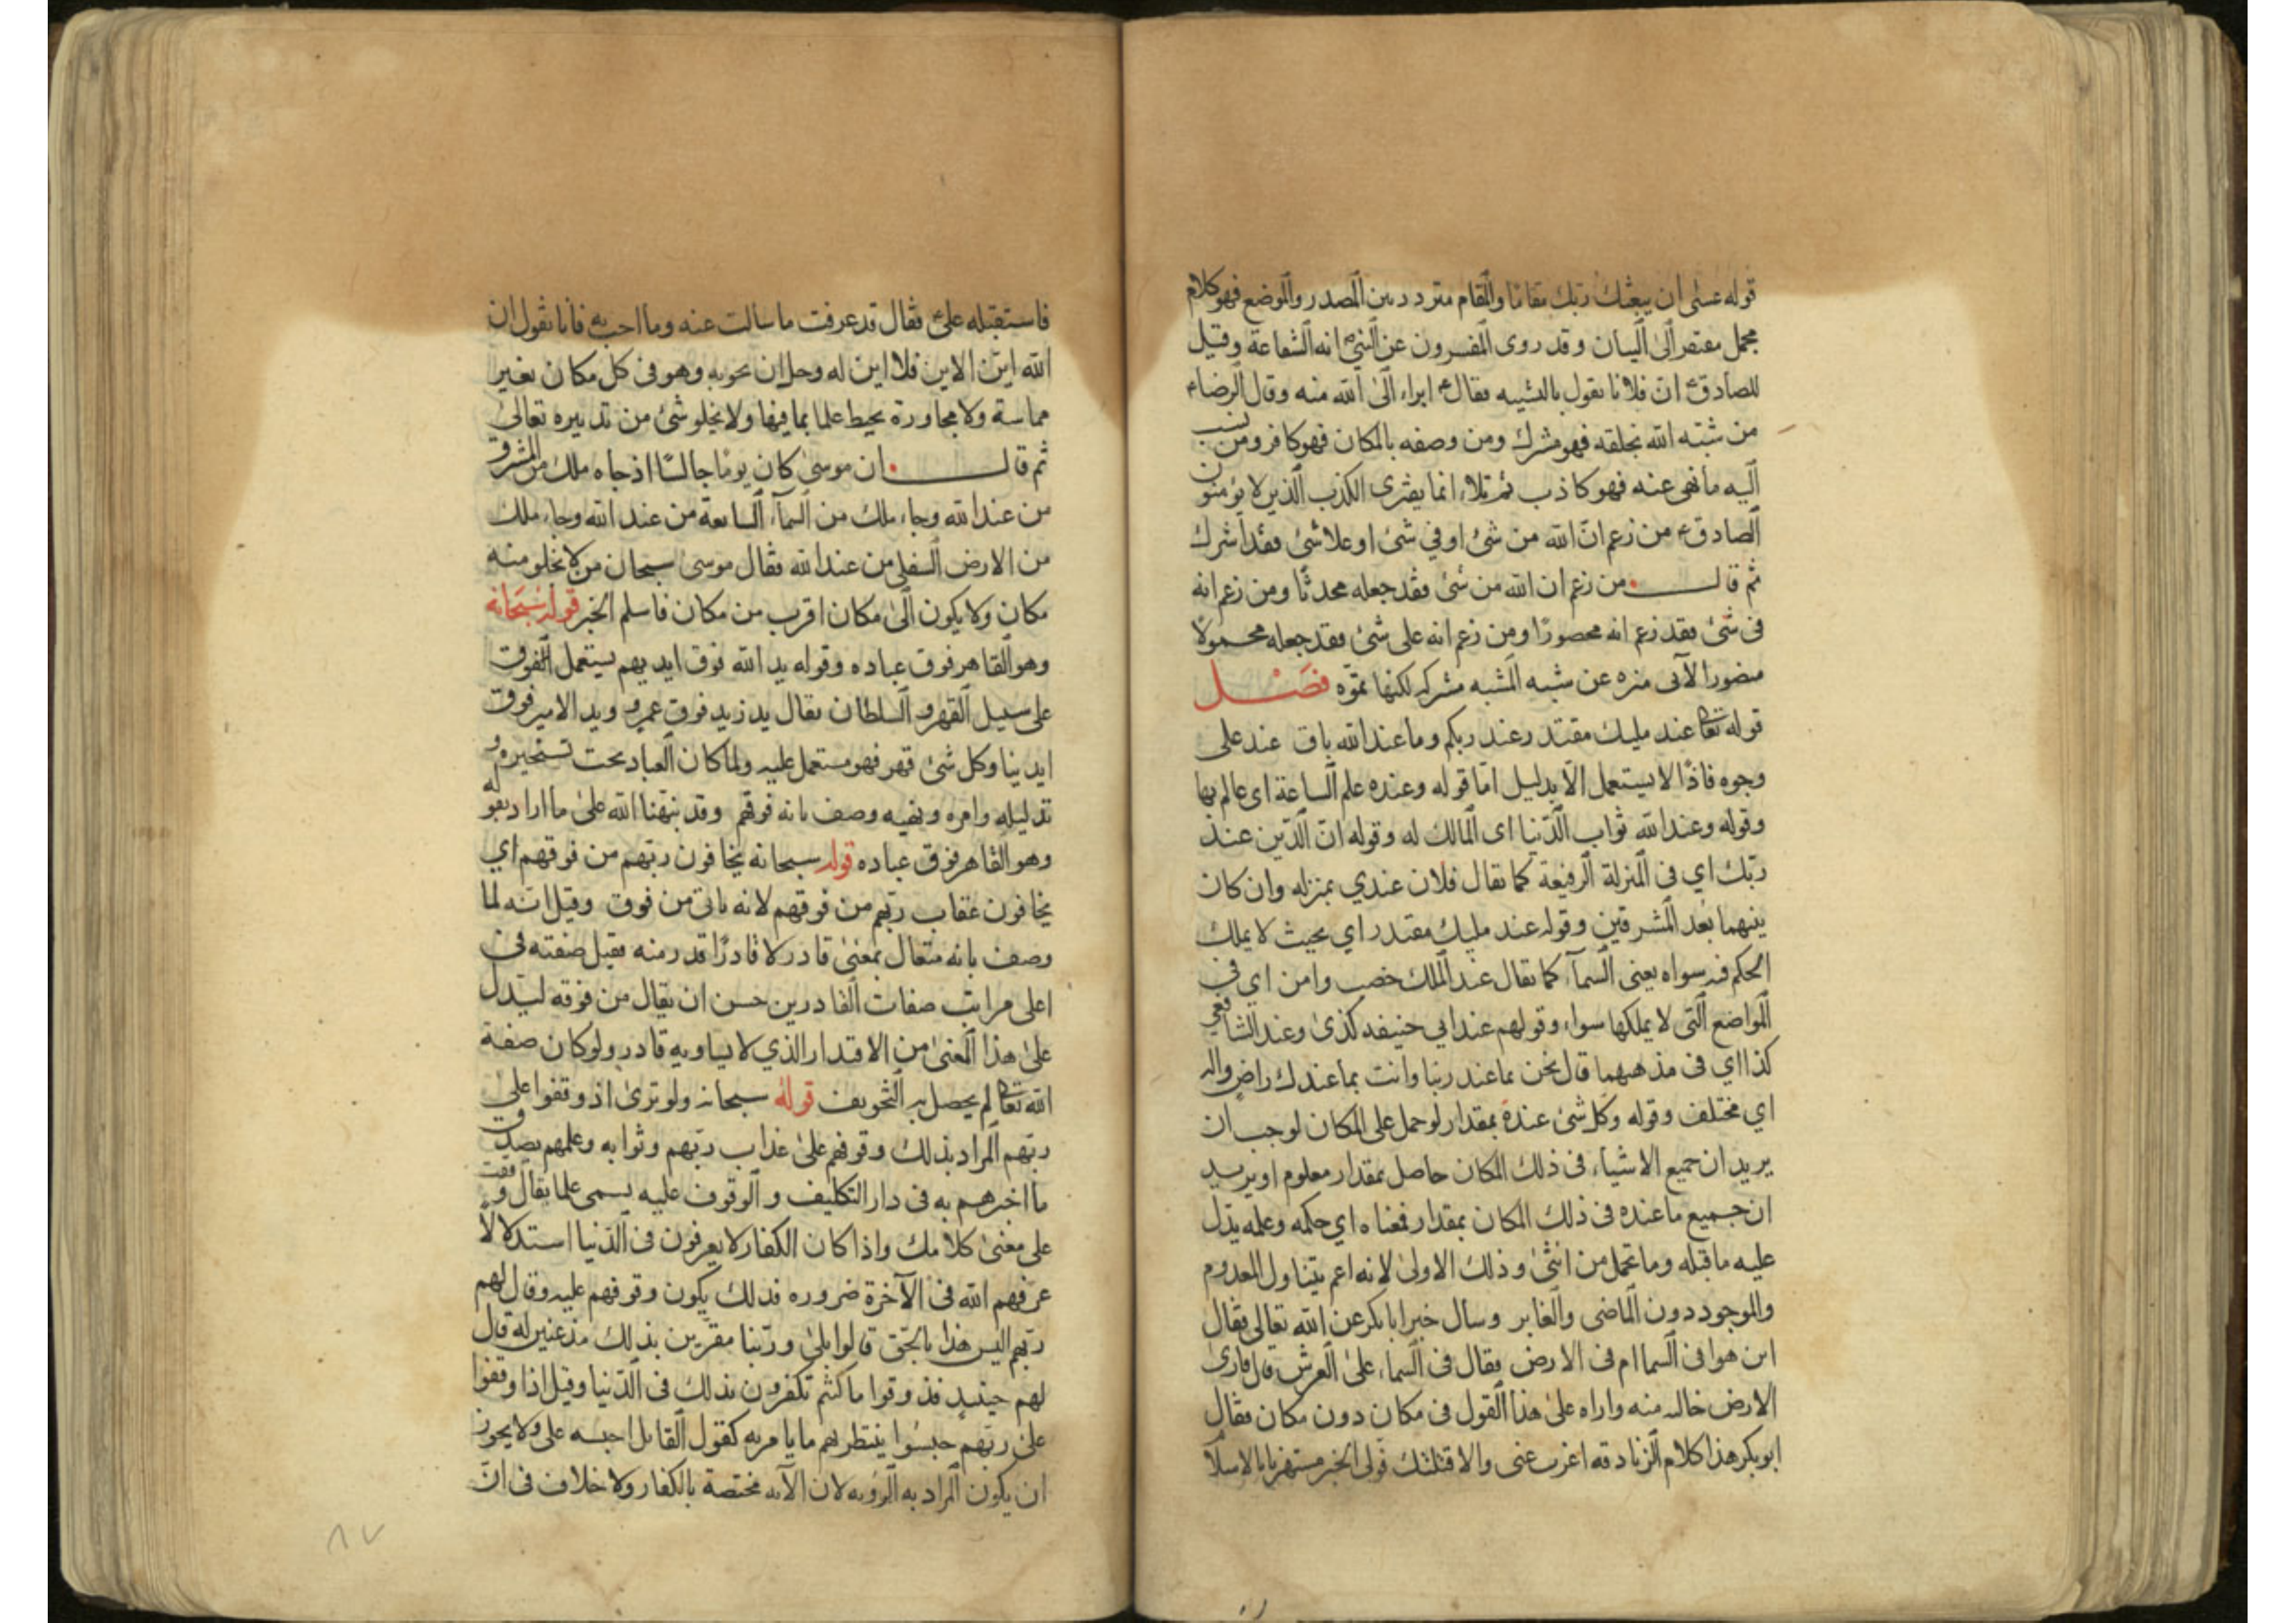 قوله عسى ان يبعثك ربك مقامًا والمقام متردد بين المصدر والموضع فهو كلام
مجمل مفتقر الى البيان وقد روى المفسرون عن النبيؐ انه الشفاعة وقيل
للصادقؑ ان فلانا يقول بالتشبيه فقالؑ ابراء الى الله منه وقال الرضاء
من شبّه الله بخلقه فهو مشرك ومن وصفه بالمكان فهو كافر ومن نسب
اليه ما نهى عنه فهو كاذب ثم تلاء انما يفترى الكذب الذين لا يؤمنون
الصادقؑ من زعم انّ الله من شئ او في شئ او علا شئ فقد اشرك
ثم قال من زعم ان الله من شئ فقد جعله محدثًا ومن زعم انه
فى شئ فقد زعم انه محصورًا ومن زعم انه على شئ فقد جعله محمولًا
منزه عن شبه المشبه فصل
قوله تعا عند مليك مقتدر وعند ربكم وما عند الله باق عند على
وجوه فاذًا لا يستعمل الّا بدليل امّا قوله وعنده علم الساعة اى عالم بها
وقوله وعند الله ثواب الدّنيا اى المالك له وقوله انّ الّذين عند
ربّك اي فى المنزلة الرفيعة كما يقال فلان عندي بمنزله وان كان
بينهما بُعد المشرقين وقوله عند مليك مقتدر اي بحيث لا يملك
الحكم فيه سواه يعنى السمآء كما يقال عند الملك خصب وامن اي في
المواضع الّتى لا يملكها سواء وقولهم عند ابي حنيفه كذى وعند الشافعي
كذا اي فى مذهبهما قال نحن بما عند ربنا وانت بما عندك راض والر
اي مختلف وقوله وكل شئ عنده بمقدار لو حمل على المكان لوجب ان
يريد ان جميع الاشياء فى ذلك المكان حاصل بمقدار معلوم او يريد
ان جميع ما عنده فى ذلك المكان بمقدار فمعناه اي حكمه وعلمه يدل
عليه ما قبله وما تحمل من انثى وذلك الاولى لانه اعم يتناول المعدوم
والموجود دون الماضى والغابر وسال خبر ابا بكر عن الله تعالى فقال
اين هو افى السما ام فى الارض فقال فى السماء على العرش قال فارى
الارض خاليه منه واراه على هذا القول فى مكان دون مكان فقال
ابو بكر هذا كلام الزنادقه اغرب عنى والا قتلتك فولى الخبر مستهزيا بالاسلا
فاستقبله علىؑ فقال قد عرفت ما سالت عنه وما احب به فانا نقول ان
الله ايّن الاين فلا اين له وجل ان يحويه وهو فى كل مكان بغير
مماسة ولا مجاورة يحيط علما بما فيها ولا يخلو شئ من تدبيره تعالى
ثم قال ان موسى كان يومًا جالسًا اذ جاه ملك من المشرق
من عند الله وجاء ملك من السمآء السابعة من عند الله وجاء ملك
من الارض السفلى من عند الله فقال موسى سبحان من لا يخلو منه
مكان ولا يكون الى مكان اقرب من مكان فاسلم الخبر قوله سبحانه
وهو القاهر فوق عباده وقوله يد الله فوق ايديهم يستعمل الفوق
على سبيل القهر و السلطان يقال يد زيد فوق عمرو ويد الامير فوق
ايدينا وكل شئ قهر فهو مستعمل عليه ولما كان العباد تحت تسخيره و
تذليله وامره ونهيه وصف بانه فوقهم وقد نبّهنا الله على ما اراد بقوله
وهو القاهر فوق عباده قوله سبحانه يخافون ربّهم من فوقهم اي
يخافون عقاب ربّهم من فوقهم لانه ياتى من فوق وقيل انّه لما
وصف بانه متعال بمعنى قادر لا قادرًا قدر منه فقيل صفته فى
اعلى مراتب صفات القادرين حسن ان يقال من فوقه ليدل
على هذا المعنى من الاقتدار الذي لا يساويه قادر ولو كان صفة
الله تعا لم يحصل به التخويف قوله سبحانه ولو ترى اذ وقفوا على
ربّهم المراد بذلك وقوفهم على عذاب ربّهم وثوابه وعلمهم بصدق
ما اخبرهم به فى دار التكليف و الوقوف عليه يسمى علما يقال وقفت
على معنى كلامك واذا كان الكفار لا يعرفون فى الدّنيا استدلالًا
عرفهم الله فى الآخرة ضروره فذلك يكون وقوفهم عليه وقال لهم
ربّهم اليس هذا بالحق قالوا بلى وربّنا مقرّين بذلك مذعنين له قال
لهم حينيدٍ فذوقوا ما كنتم تكفرون بذلك فى الدّنيا وقيل اذا وقفوا
على ربّهم حبسُوا ينتظر بهم ما يامر به كقول القايل احبسه على ولا يجوز
ان يكون المراد به الرؤيه لان الآيه مختصة بالكفار ولا خلاف فى انّ
٨٧